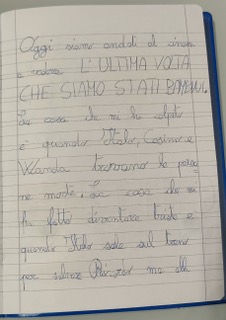 Oggi siamo andati al cinema
a vedere L'ULTIMA VOLTA
CHE SIAMO STATI BAMBINI.
La cosa che mi ha colpito
è quando Italo, Cosimo e
Wanda trovano le perso
ne morte. La cosa che mi
ha fatto diventare triste è
quando Italo sale sul treno
per salvare Riccardo ma alla